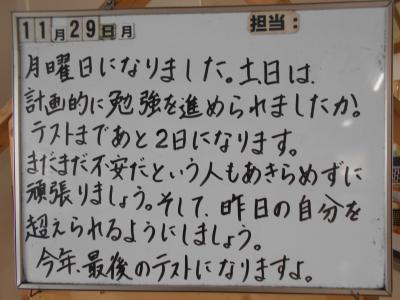 11月29日月 担当:
月曜日になりました。土日は、
計画的に勉強を進められましたか。
テストまであと2日になります。
まだまだ不安だという人もあきらめずに
頑張りましょう。そして、昨日の自分を
超えられるようにしましょう。
今年、最後のテストになりますよ。